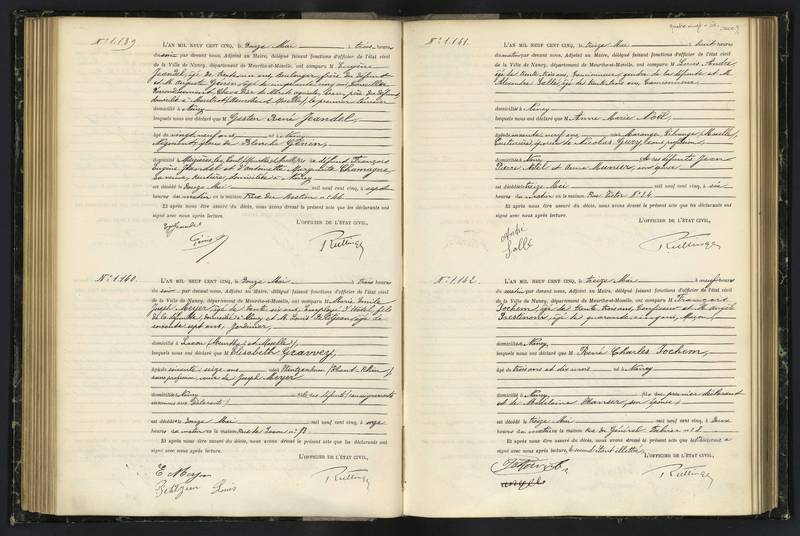 N° 1.139
L'AN MIL NEUF CENT CINQ, le Douze Mai à trois heures
du soir par devant nous, Adjoint au Maire, délégué faisant fonctions d'officier de l'état civil
de la Ville de Nancy, département de Meurthe-et-Moselle, ont comparu M Eugène
Jeandel, âgé de trente ans, boulanger, frère du défunt
et M. Auguste Génin, âgé de cinquante cinq ans, Conseiller
d'arrondissement, Chevalier du Mérite agricole, beau père du défunt,
domicilié à
lesquels nous ont déclaré que M Gaston René Jeandel,
âgé de vingt neuf ans, né à Nancy
Négociant, époux de Blanche Génin,
domicilié à fils de défunt François
Eugène Jeandel et d'Antoinette Marguerite Champagne,
sa veuve, rentière, domiciliée à Nancy
est décédé le Douze Mai mil neuf cent cinq, à sept
heures du matin en la maison Rue du Bastion n°
Et après nous être assuré du décès, nous avons dressé le présent acte que les déclarants ont
signé avec nous après lecture.
L'OFFICIER DE L'ÉTAT CIVIL,
E. Jeandel
Génin
Ruttinger
N° 1.140
L'AN MIL NEUF CENT CINQ, le Douze Mai à trois heures
du soir par devant nous, Adjoint au Maire, délégué faisant fonctions d'officier de l'état civil
de la Ville de Nancy, département de Meurthe-et-Moselle, ont comparu M Marie Emile
Joseph Meyer, âgé de trente six ans, Employé d'hôtel, fils
de la défunte, domicilié à Nancy et M. Louis Petitjean, âgé de
soixante sept ans, Jardinier,
domicilié à (Meurthe et Moselle)
lesquels nous ont déclaré que M Elisabeth
âgée de soixante seize ans née à (Haut-Rhin)
sans profession, veuve de Joseph Meyer
domiciliée à Nancy fille des défunts (renseignements
inconnus aux déclarants)
est décédée le Douze Mai mil neuf cent cinq, à onze
heures du matin en la maison Rue de
Et après nous être assuré du décès, nous avons dressé le présent acte que les déclarants ont
signé avec nous après lecture.
L'OFFICIER DE L'ÉTAT CIVIL,
E Meyer
Petitjean Louis
Ruttinger
N° 1.141
L'AN MIL NEUF CENT CINQ, le treize Mai à huit heures
du matin par devant nous, Adjoint au Maire, délégué faisant fonctions d'officier de l'état civil
de la Ville de Nancy, département de Meurthe-et-Moselle, ont comparu M Louis André,
âgé de trente trois ans, gendre de la défunte et M.
Alexandre Sallé, âgé de trente trois ans,
domiciliés à Nancy
lesquels nous ont déclaré que M Anne Marie Noël,
âgée de soixante neuf ans née à (Moselle)
Couturière, épouse de Nicolas sans profession
domiciliée à Nancy fille des défunts Jean
Pierre Noël et Anne Munier, son épouse
est décédée le treize Mai mil neuf cent cinq, à six
heures du matin en la maison Rue
Et après nous être assuré du décès, nous avons dressé le présent acte que les déclarants ont
signé avec nous après lecture.
L'OFFICIER DE L'ÉTAT CIVIL,
André
Sallé
Ruttinger
N° 1.142
L'AN MIL NEUF CENT CINQ, le treize Mai à neuf heures
du matin par devant nous, Adjoint au Maire, délégué faisant fonctions d'officier de l'état civil
de la Ville de Nancy, département de Meurthe-et-Moselle, ont comparu M François
Jochem, âgé de trente trois ans, et M. Angelo
âgé de quarante cinq ans, Maçon,
domiciliés à Nancy,
lesquels nous ont déclaré que M René Charles Jochem,
âgé de trois ans et dix mois né à Nancy
domicilié à Nancy, fils du premier déclarant
et de Madeleine son épouse
est décédé le treize Mai mil neuf cent cinq, à deux
heures du matin en la maison rue du Général Fabvier n°
Et après nous être assuré du décès, nous avons dressé le présent acte que le déclarant a
signé avec nous après lecture, le second étant illettré.
L'OFFICIER DE L'ÉTAT CIVIL,
Ruttinger